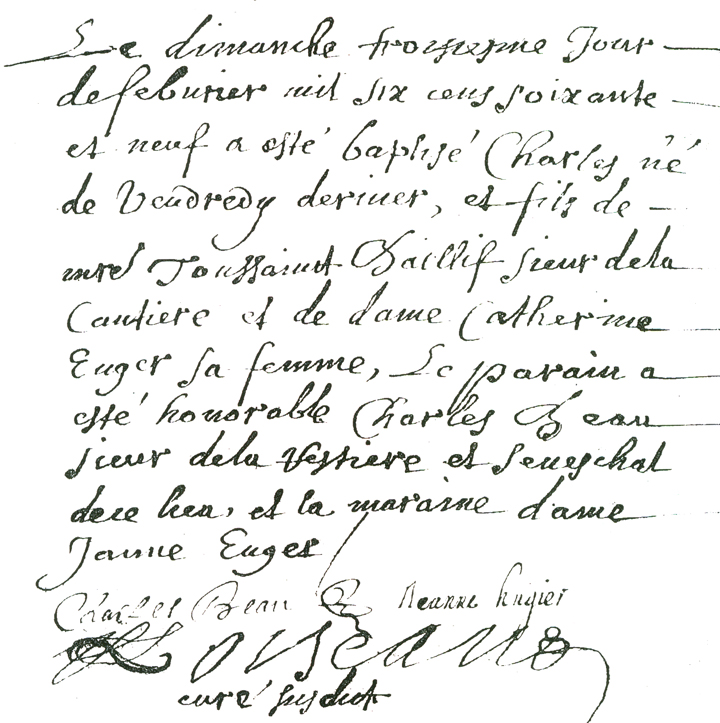 Le dimanche troisiesme Jour
de feburier mil six cens soixante
et neuf a esté baptisé Charles né
de Vendredy dernier, et fils de
mre Toussainct Baillif sieur dela
Cantiere et de dame Catherine
Euger sa femme, Le parain a
esté honorable Charles Beau
sieur dela Vestiere et seneschal
dece lieu, et la maraine dame
Janne Euger
Charles Beau Jeanne hugier
Loiseau
curé susdict